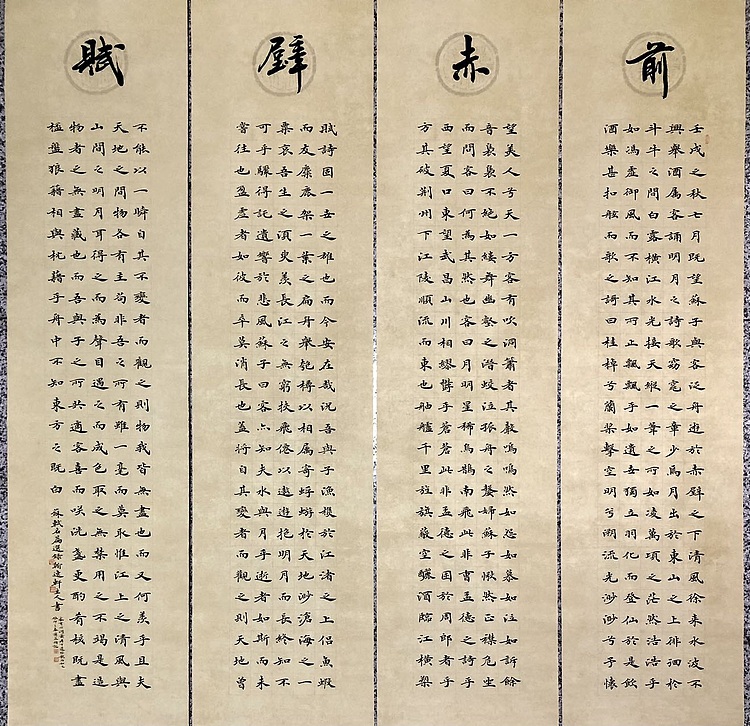 前
壬戌之秋七月既望蘇子與客泛舟遊於赤壁之下清風徐來水波不
興舉酒属客誦明月之詩歌窈窕之章少焉月出於東山之上徘徊於
斗牛之間白露橫江水光接天縱一葦之所如凌萬頃之茫然浩浩乎
如馮虛御風而不知其所止飄飄乎如遺世獨立羽化而登仙於是飲
酒樂甚扣舷而歌之謌曰桂棹兮蘭槳擊空明兮溯流光渺渺兮予懷
赤
望美人兮天一方客有吹洞簫者其聲嗚嗚然如怨如慕如泣如訴餘
音裊裊不絕如縷舞幽壑之潛蛟泣孤舟之嫠婦蘇子愀然正襟危坐
而問客曰何為其然也客曰月明星稀烏鵲南飛此非曹孟德之詩乎
西望夏口東望武昌山川相繆鬱乎蒼蒼此非孟德之困於周郎者乎
方其破荊州下江陵順流而東也舳艫千里旌旗蔽空釃酒臨江橫槊
壁
賦詩固一世之雄也而今安在哉況吾與子漁樵於江渚之上侶魚蝦
而友麋鹿架一葉之扁舟舉匏樽以相屬寄蜉蝣於天地渺滄海之一
粟哀吾生之須臾羨長江之無窮挾飛僊以遨遊抱明月而長終知不
可乎驟得託遺響於悲風蘇子曰客亦知夫水與月乎逝者如斯而未
嘗往也盈虛者如彼而卒莫消長也蓋將自其變者而觀之則天地曾
賦
不能以一瞬自其不變者而觀之則物我皆無盡也而又何羨乎且夫
天地之間物各有主苟非吾之所有雖一毫而莫取惟江上之清風與
山間之明月耳得之而為聲目遇之而成色取之無禁用之不竭是造
物者之無盡藏也而吾與子之所共適客喜而笑洗盞更酌肴核既盡
桮盤狼籍相與枕藉乎舟中不知東方之既白
蘇軾名篇選錄